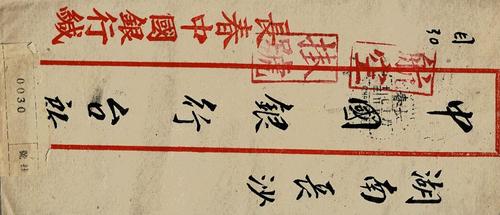 湖南長沙
中國銀行台啟
航空
掛號
長春中國銀行緘
0030